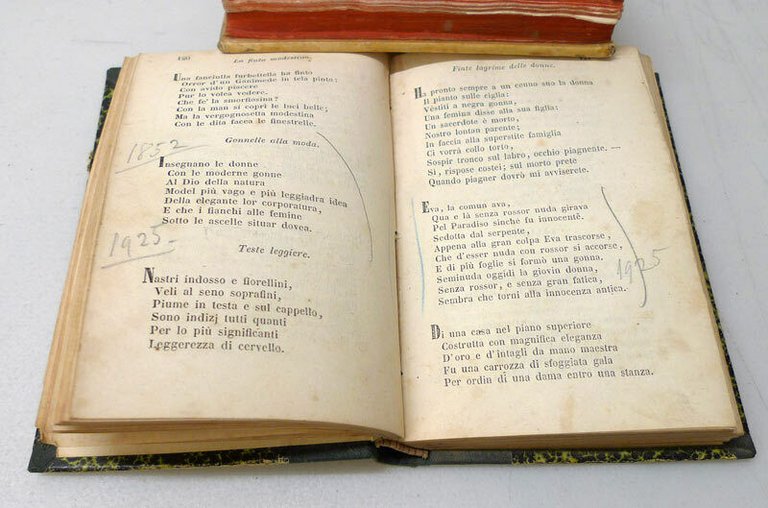 La finta modestina.
Una fanciulla furbettella ha finto
Orror d'un Ganimede in tela pinto:
Con avido piacere
Pur lo volea vedere.
Che fe' la smorfiosina?
Con la man si coprì le luci belle;
Ma la vergognosetta modestina
Con le dita facea le finestrelle.
Gonnelle alla moda.
1852
Insegnano le donne
Con le moderne gonne
Al Dio della natura
Model più vago e più leggiadra idea
Della elegante lor corporatura,
E che i fianchi alle femine
Sotto le ascelle situar dovea.
1925
Teste leggiere.
Nastri indosso e fiorellini,
Veli al seno soprafini,
Piume in testa e sul cappello,
Sono indizj tutti quanti
Per lo più significanti
Leggerezza di cervello.
Finte lagrime delle donne.
Ha pronto sempre a un cenno suo la donna
Il pianto sulle ciglia:
Vèstiti a negra gonna,
Una femina disse alla sua figlia:
Un sacerdote è morto,
Nostro lontan parente;
In faccia alla superstite famiglia
Ci vorrà collo torto,
Sospir tronco sul labro, occhio piagnente. —
Si, rispose costei; sul morto prete
Quando piagner dovrò mi avviserete.
Eva, la comun ava,
Qua e là senza rossor nuda girava
Pel Paradiso sinche fu innocente.
Sedotta dal serpente,
Appena alla gran colpa Eva trascorse,
Che d'esser nuda con rossor si accorse,
E di più foglie si formò una gonna.
Seminuda oggidi la giovin donna,
Senza rossor, e senza gran fatica,
Sembra che torni alla innocenza antica.
1925
Di una casa nel piano superiore
Costrutta con magnifica eleganza
D'oro e d'intagli da mano maestra
Fu una carrozza di sfoggiata gala
Per ordin di una dama entro una stanza.